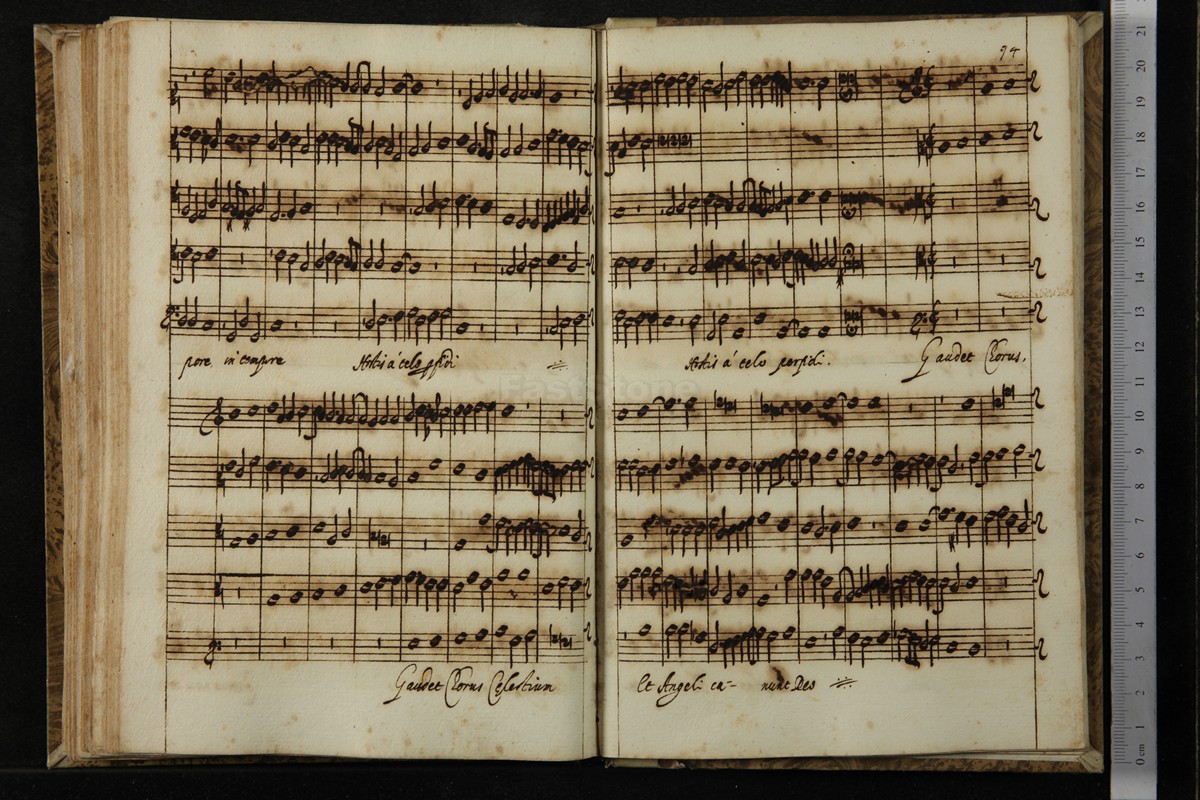 94
pore in tempore Hostis à celo perfidi
Hostis à celo perfidi. Gaudet Chorus.
Gaudet Chorus Celestium
Et Angeli ca- nunt Deo
FastStone
0 cm 1 2 3 4 5 6 7 8 9 10 11 12 13 14 15 16 17 18 19 20 21